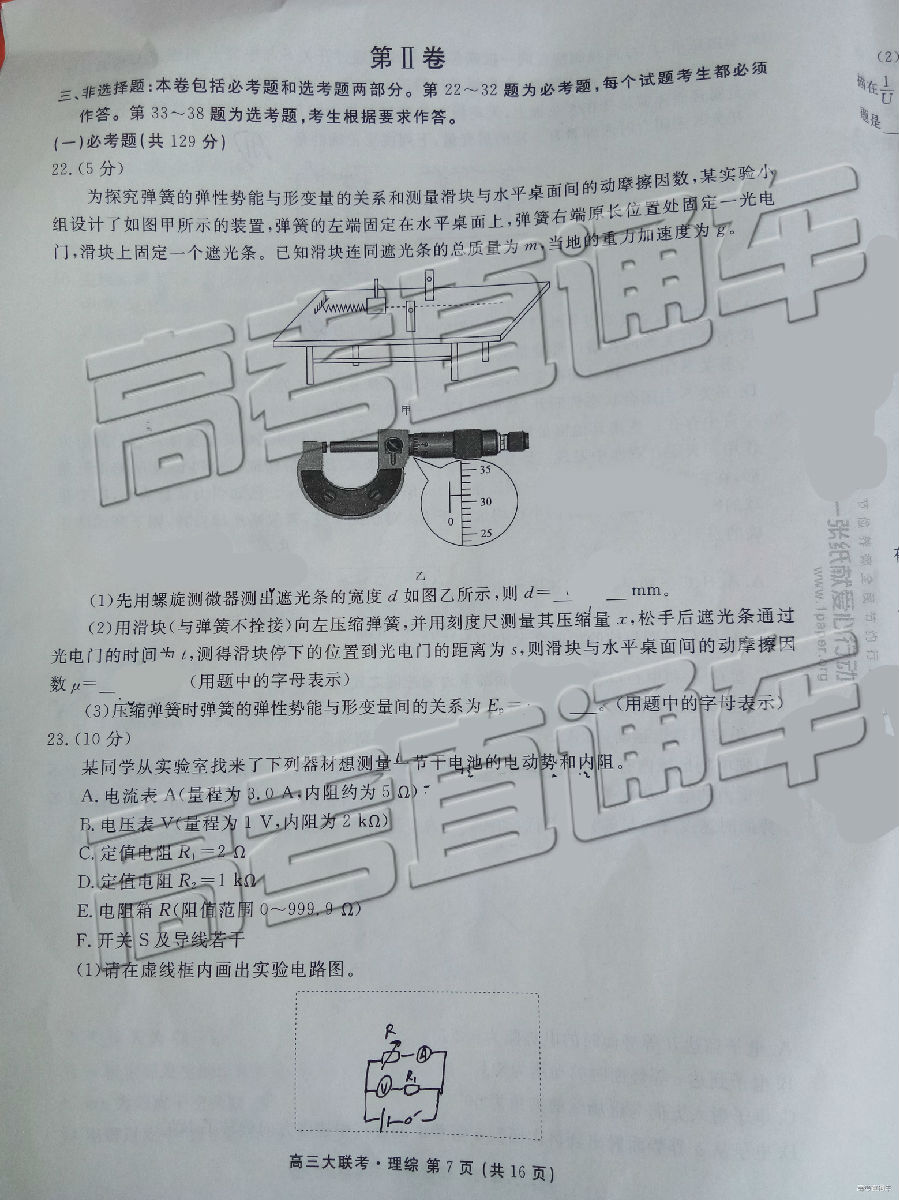 第Ⅱ卷
三、非选择题:本卷包括必考题和选考题两部分。第 22～32 题为必考题,每个试题考生都必须
作答。第 33～38 题为选考题,考生根据要求作答。
(一)必考题(共 129 分)
22.(5 分)
为探究弹簧的弹性势能与形变量的关系和测量滑块与水平桌面间的动摩擦因数,某实验小
组设计了如图甲所示的装置,弹簧的左端固定在水平桌面上,弹簧右端原长位置处固定一光电
门,滑块上固定一个遮光条。已知滑块连同遮光条的总质量为 m,当地的重力加速度为 g。
甲
35
30
0
25
乙
(1)先用螺旋测微器测出遮光条的宽度 d 如图乙所示,则 d=__ __ mm。
(2)用滑块(与弹簧不拴接)向左压缩弹簧,并用刻度尺测量其压缩量 x,松手后遮光条通过
光电门的时间为 t,测得滑块停下的位置到光电门的距离为 s,则滑块与水平桌面间的动摩擦因
数 μ=__ (用题中的字母表示)
(3)压缩弹簧时弹簧的弹性势能与形变量间的关系为 Eₚ= ____。(用题中的字母表示)
23.(10 分)
某同学从实验室找来了下列器材想测量一节干电池的电动势和内阻。
A. 电流表 A(量程为 3.0 A,内阻约为 5 Ω)
B. 电压表 V(量程为 1 V,内阻为 2 kΩ)
C. 定值电阻 R₁=2 Ω
D. 定值电阻 R₂=1 kΩ
E. 电阻箱 R(阻值范围 0～999.9 Ω)
F. 开关 S 及导线若干
(1)请在虚线框内画出实验电路图。
R
A
V
R₁
高三大联考·理综 第 7 页 (共 16 页)
(2)
标在 1/U
题是
一张纸献爱心行动
www.1paper.org
高考直通车
高考直通车